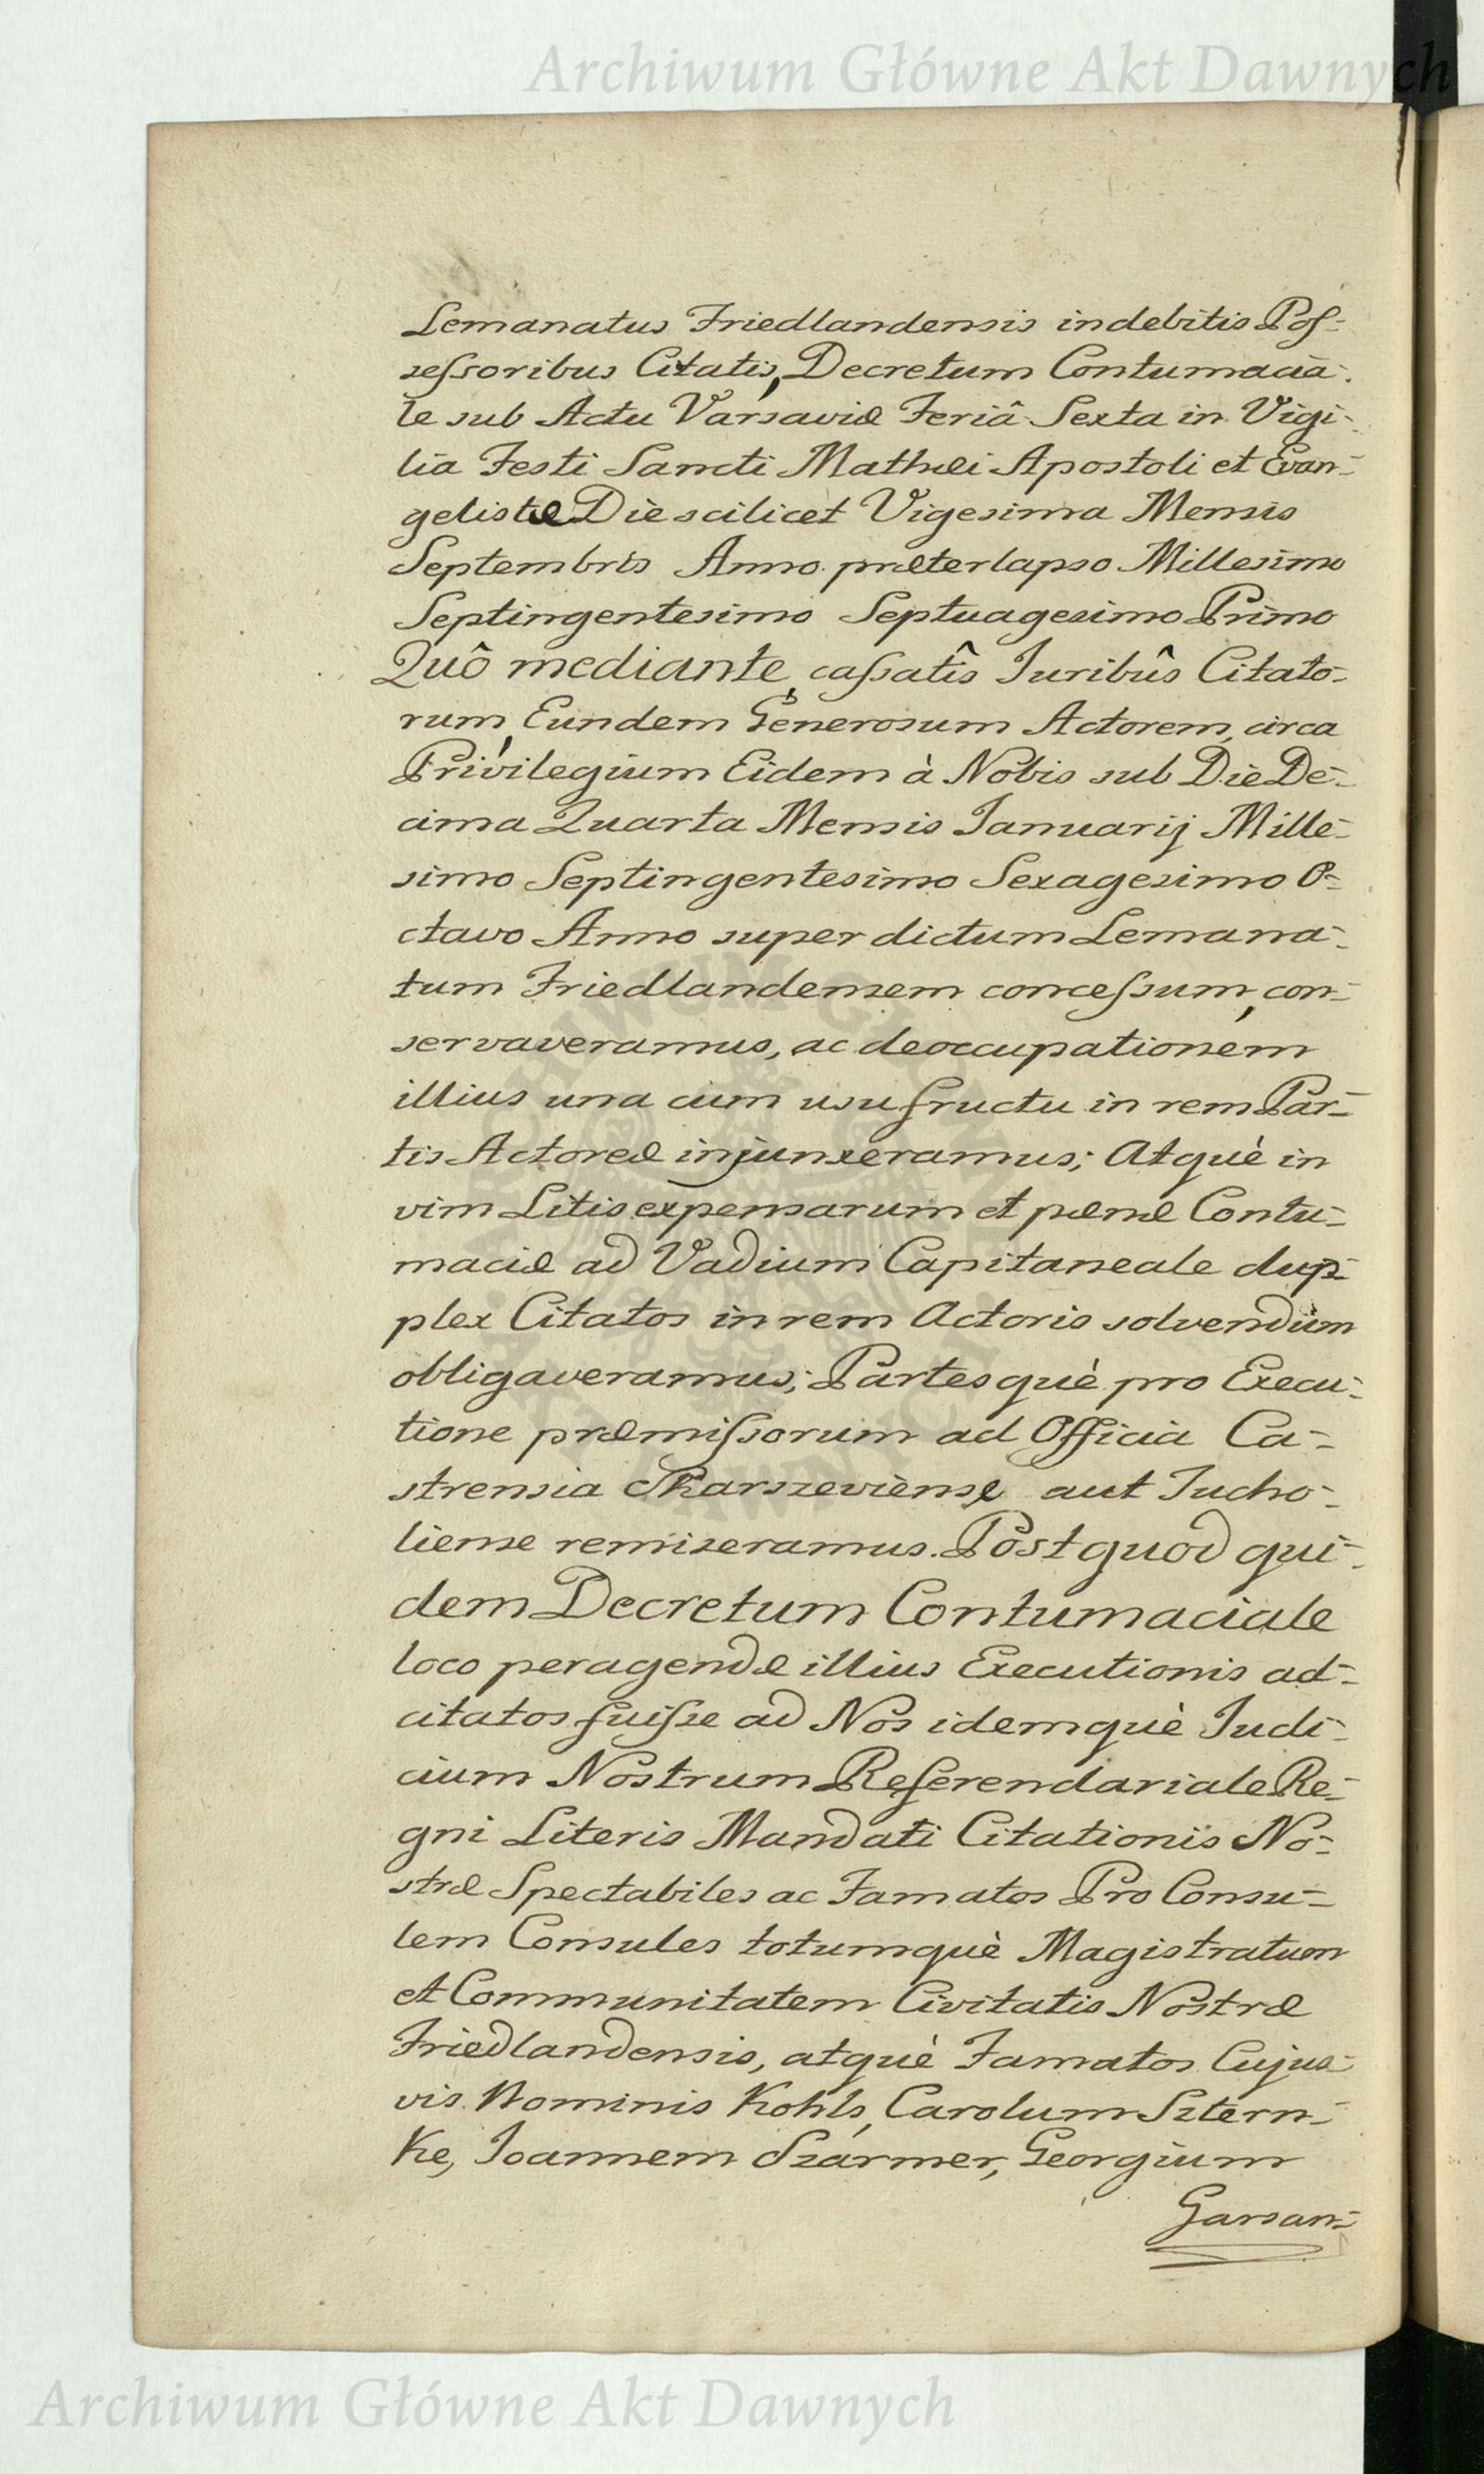 Archiwum Główne Akt Dawnych
Lemanatus Friedlandensis indebitis Pos-
sessoribus Citatis, Decretum Contumacia-
le sub Actu Varsaviæ Feriâ Sexta in Vigi-
lia Festi Sancti Mathæi Apostoli et Evan-
gelistæ Die scilicet Vigesima Mensis
Septembris Anno præterlapso Millesimo
Septingentesimo Septuagesimo Primo
Quô mediante, cassatîs Juribûs Citato-
rum, Eundem Generosum Actorem, circa
Privilegium Eidem à Nobis sub Die De-
cima Quarta Mensis Januarij Mille-
simo Septingentesimo Sexagesimo O-
ctavo Anno super dictum Lemana-
tum Friedlandensem concessum, con-
servaveramus, ac deoccupationem
illius una cum usufructu in rem Par-
tis Actoreæ injunxeramus; Atquè in
vim Litis expensarum et pænæ Contu-
maciæ ad Vadium Capitaneale dup-
plex Citatos in rem Actoris solvendum
obligaveramus; Partesquè pro Execu-
tione præmissorum ad Officia Ca-
strensia Skarszeviense aut Tucho-
liense remiseramus. Post quod qui-
dem Decretum Contumaciale
loco peragendæ illius Executionis ad-
citatos fuisse ad Nos idemquè Judi-
cium Nostrum Referendariale Re-
gni Literis Mandati Citationis No-
stræ Spectabiles ac Famatos Pro Consu-
lem Consules totumquè Magistratum
et Communitatem Civitatis Nostræ
Friedlandensis, atquè Famatos Cujus-
vis Nominis Kohls, Carolum Sztern-
ke, Joannem Szarmer, Georgium
Garsan-
Archiwum Główne Akt Dawnych